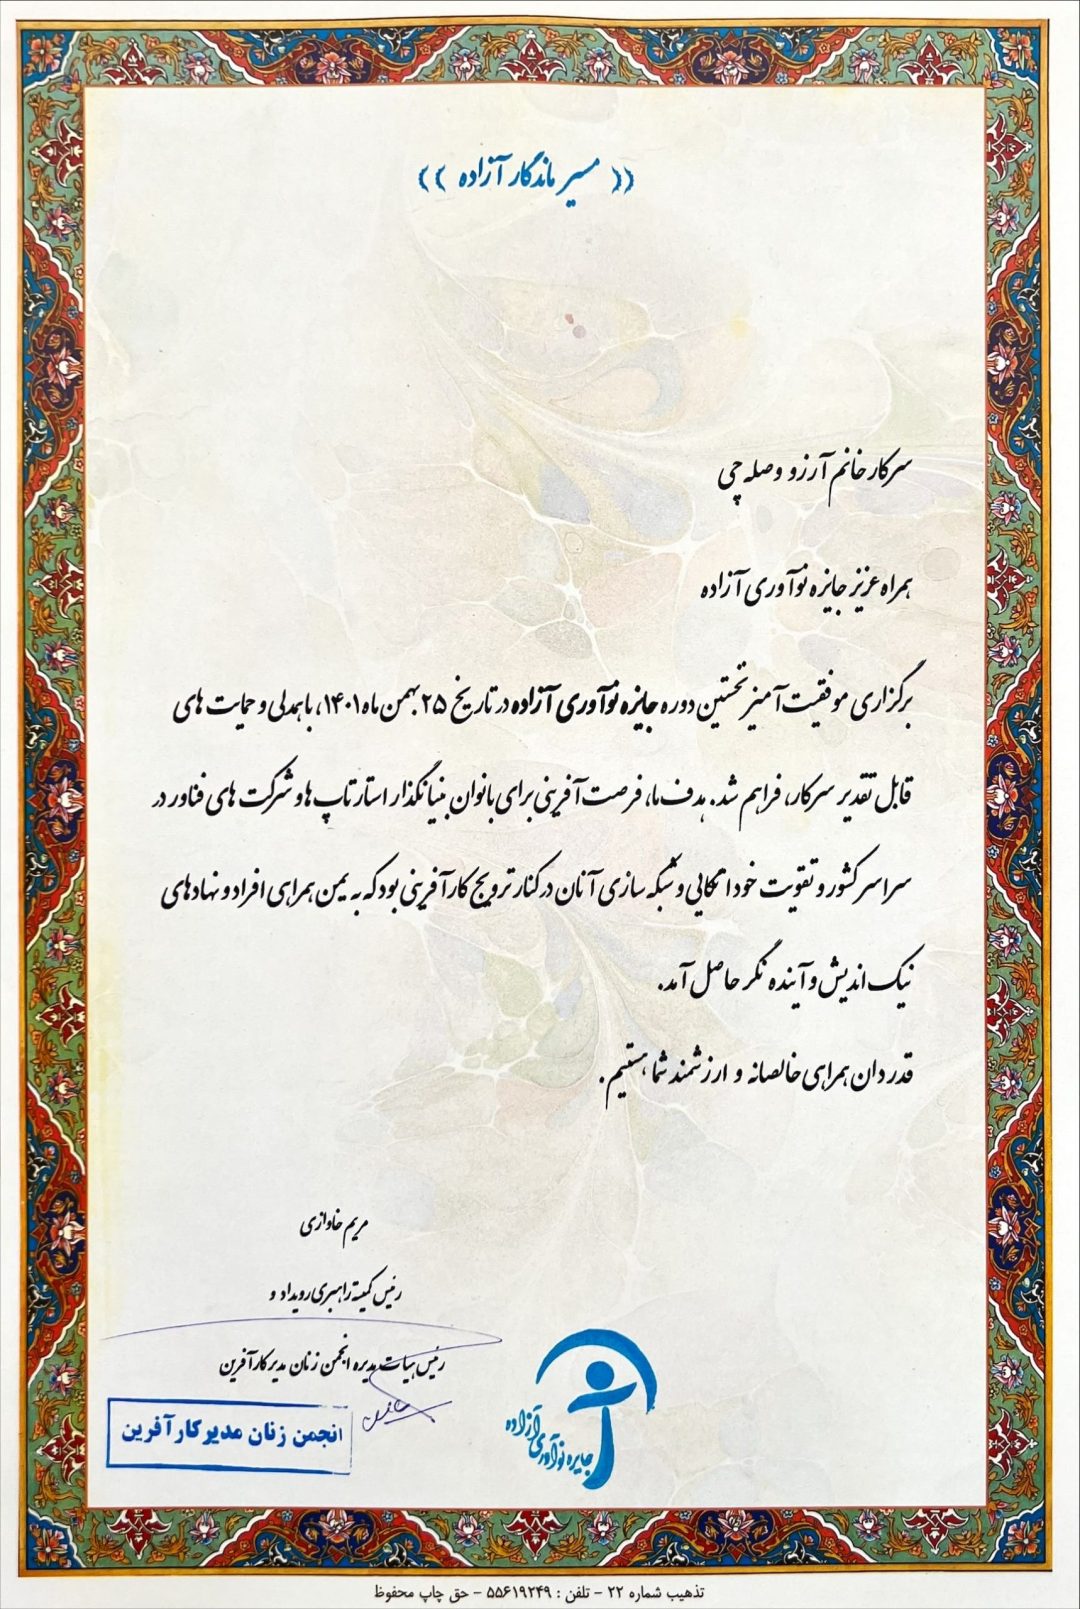 (( مسیر ماندگار آزاده ))
سرکار خانم آرزو وصله چی
همراه عزیز جایزه نوآوری آزاده
برگزاری موفقیت آمیز نخستین دوره جایزه نوآوری آزاده در تاریخ ۲۵ بهمن ماه ۱۴۰۱، با همدلی و حمایت های
قابل تقدیر سرکار، فراهم شد. هدف ما، فرصت آفرینی برای بانوان بنیانگذار استارتاپ ها و شرکت های فناور در
سراسر کشور و تقویت خود اتکایی و شبکه سازی آنان در کنار ترویج کارآفرینی بود که به یمن همراهی افراد و نهادهای
نیک اندیش و آینده نگر حاصل آمد.
قدردان همراهی خالصانه و ارزشمند شما هستیم.
مریم خاوازی
رئیس کمیته راهبری رویداد و
رئیس هیات مدیره انجمن زنان مدیر کارآفرین
انجمن زنان مدیر کارآفرین
جایزه نوآوری آزاده
تذهیب شماره ۲۲ - تلفن : ۵۵۶۱۹۲۴۹ - حق چاپ محفوظ